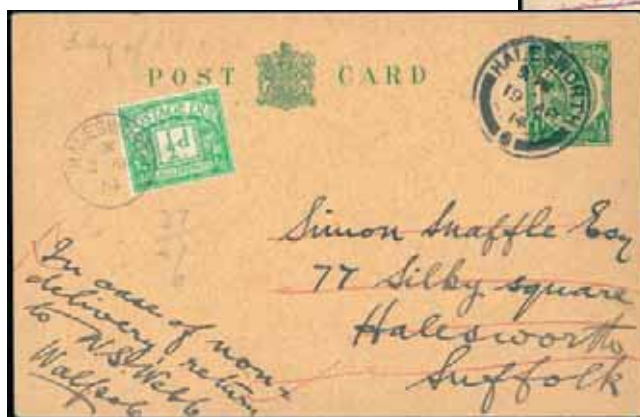 Day of
POST CARD
HALESWORTH
19
14
HALESW
POSTAGE DUE
½D
Simon Snaffle Esq
77 Silky square
Halesworth
Suffolk
In case of non-
delivery return
to W.S. Webb
Walpole